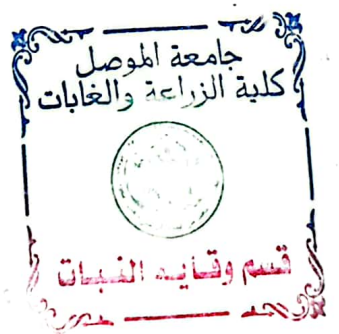 جامعة الموصل
كلية الزراعة والغابات
قسم وقايه النبات